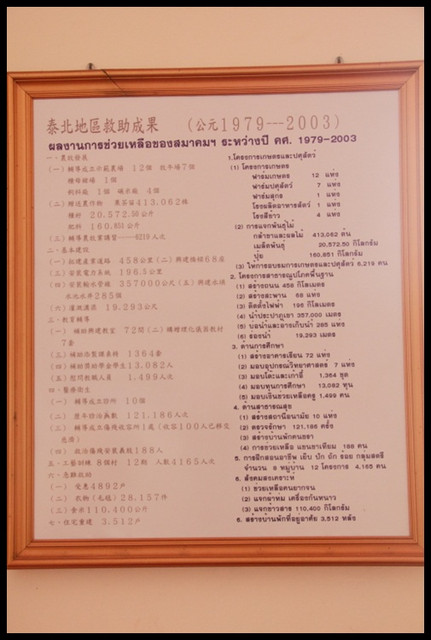 泰北地區救助成果 (公元1979---2003)
ผลงานการช่วยเหลือของสมาคมฯ ระหว่างปี คศ. 1979-2003
一、農牧發展
(一) 輔導成立示範農場 12個 牧牛場7個
種豬場 1個
飼料廠 1個 碾米廠 4個
(二) 贈送農作物 果茶苗413,062株
種籽 20,572.50公斤
肥料 160,851公斤
(三) 輔導農牧業講習——6219人次
二、基本建設
(一) 扭建產業道路 458公里(二) 興建橋樑68座
(三) 安裝電力系統 196.5公里
(四) 安裝輸水管線 357000公尺(五) 興建水塘
水池水井285個
(六) 灌溉溝渠 19,293公尺
三、教育輔導
(一) 補助興建教室 72間(二) 購贈理化儀器教材
7套
(三) 補助添製課桌椅 1364套
(四) 補助獎助學金學生13,082人
(五) 慰問教職人員 1,499人次
四、醫療衛生
(一) 輔導成立診所 10個
(二) 歷年診治病數 121,186人次
(三) 輔導成立傷殘收容所1處 (收容100人已移交
在港)
(四) 救治傷殘安裝義肢188人
五、工藝訓練 8個村 12期 人數4165人次
六、急難救助
(一) 受惠4892戶
(二) 衣物 (毛毯) 28,157件
(三) 食米110,400公斤
七、住宅重建 3,512戶
1.โครงการเกษตรและปศุสัตว์
(1) โครงการเกษตร
ฟาร์มเกษตร 12 แห่ง
ฟาร์มปศุสัตว์ 7 แห่ง
ฟาร์มสุกร 1 แห่ง
โรงผลิตอาหารสัตว์ 1 แห่ง
โรงสีขาว 4 แห่ง
(2) การแจกพันธุ์ไม้
กล้าชาและผลไม้ 413,062 ต้น
เมล็ดพันธุ์ 20,572.50 กิโลกรัม
ปุ๋ย 160,851 กิโลกรัม
(3) ให้การอบรมการเกษตรและปศุสัตว์ 6,219 คน
2. โครงการสาธารณูปโภคพื้นฐาน
(1) สร้างถนน 458 กิโลเมตร
(2) สร้างสะพาน 68 แห่ง
(3) ติดตั้งไฟฟ้า 196 กิโลเมตร
(4) นำประปาภูเขา 357,000 เมตร
(5) บ่อน้ำและอ่างเก็บน้ำ 285 แห่ง
(6) ร่องน้ำ 19,293 เมตร
3. ด้านการศึกษา
(1) สร้างอาคารเรียน 72 แห่ง
(2) มอบอุปกรณ์วิทยาศาสตร์ 7 แห่ง
(3) มอบโต๊ะและเก้าอี้ 1,364 ชุด
(4) มอบทุนการศึกษา 13,082 ทุน
(5) มอบเงินช่วยเหลือครู 1,499 คน
4. ด้านสาธารณสุข
(1) สร้างสถานีอนามัย 10 แห่ง
(2) ตรวจรักษา 121,186 ครั้ง
(3) สร้างบ้านพักคนชรา
(4) การช่วยเหลือ แขนขาเทียม 188 คน
5. การฝึกสอนอาชีพ เย็บ ปัก ถัก ร้อย กลุ่มสตรี
จำนวน 8 หมู่บ้าน 12 โครงการ 4,165 คน
6. สังคมสงเคราะห์
(1) ช่วยเหลือคนยากจน
(2) แจกผ้าห่ม เครื่องกันหนาว
(3) แจกข้าวสาร 110,400 กิโลกรัม
6. สร้างบ้านพักที่อยู่อาศัย 3,512 หลัง